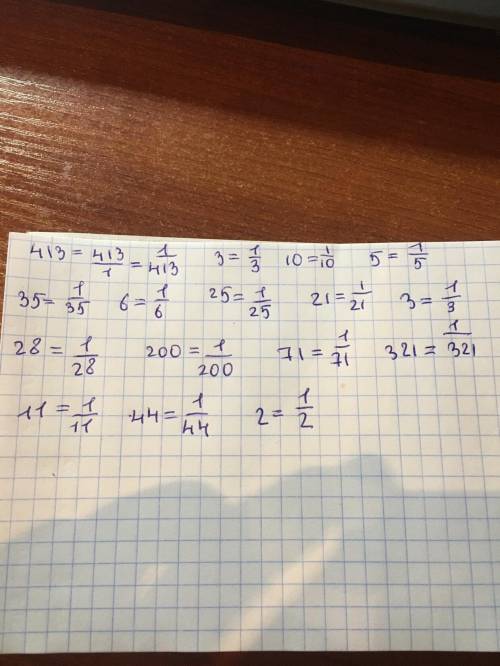 413 = 413/1 = 1/413 3 = 1/3 10 = 1/10 5 = 1/5
35 = 1/35 6 = 1/6 25 = 1/25 21 = 1/21 3 = 1/3
28 = 1/28 200 = 1/200 71 = 1/71 321 = 1/321
11 = 1/11 44 = 1/44 2 = 1/2